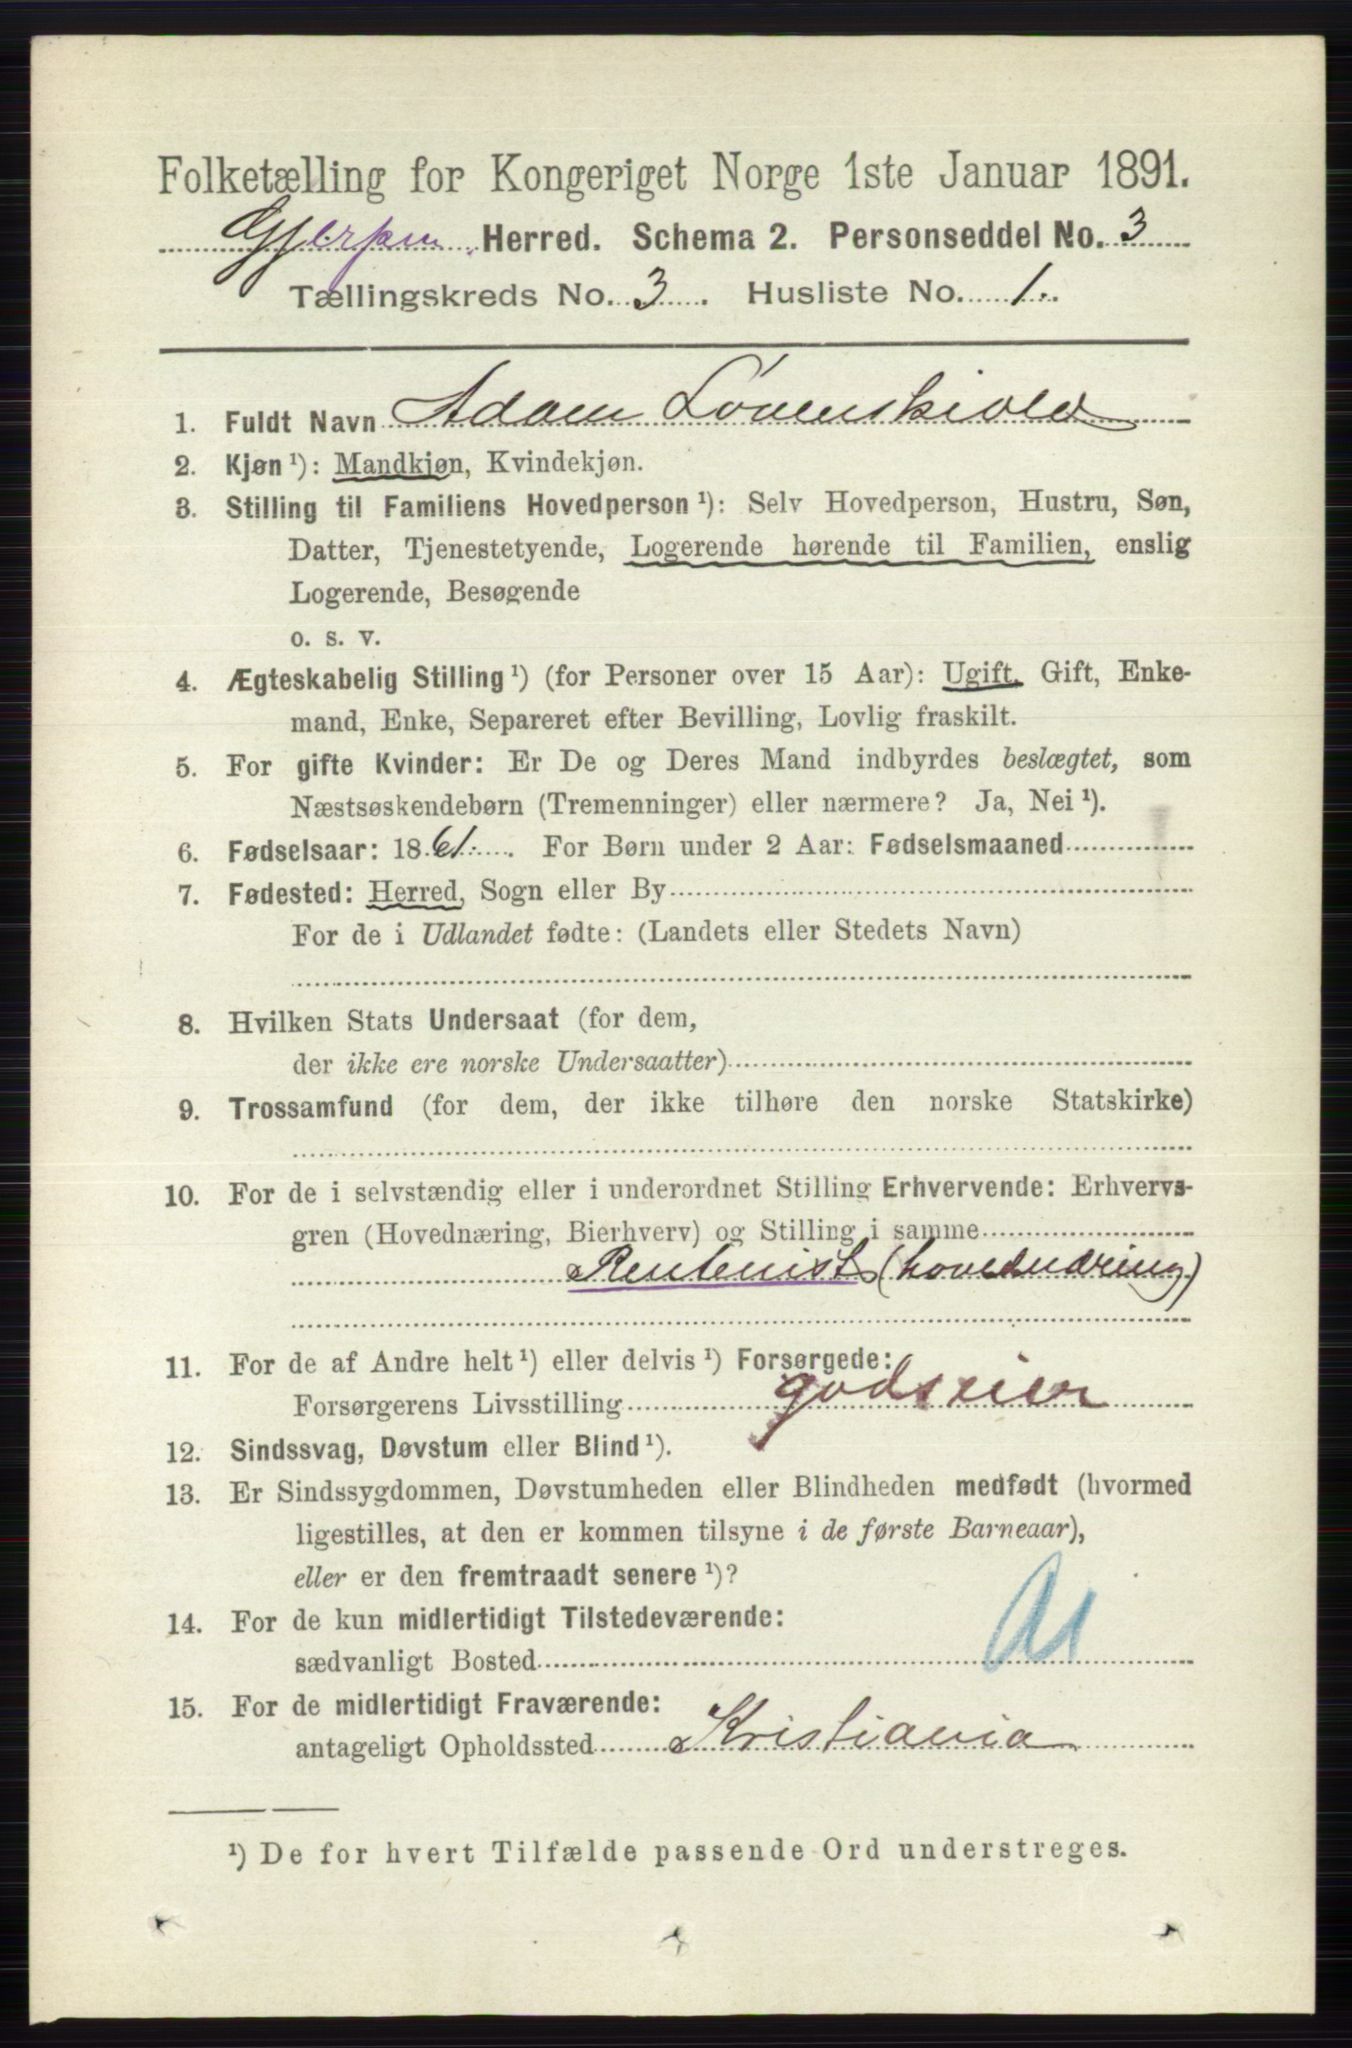 Folketælling for Kongeriget Norge 1ste Januar 1891.
Gjerpen Herred. Schema 2. Personseddel No. 3
Tællingskreds No. 3. Husliste No. 1.
1. Fuldt Navn Adam Løvenskiold
2. Kjøn ¹): Mandkjøn, Kvindekjøn.
3. Stilling til Familiens Hovedperson ¹): Selv Hovedperson, Hustru, Søn,
Datter, Tjenestetyende, Logerende hørende til Familien, enslig
Logerende, Besøgende
o. s. v.
4. Ægteskabelig Stilling ¹) (for Personer over 15 Aar): Ugift, Gift, Enke-
mand, Enke, Separeret efter Bevilling, Lovlig fraskilt.
5. For gifte Kvinder: Er De og Deres Mand indbyrdes beslægtet, som
Næstsøskendebørn (Tremenninger) eller nærmere? Ja, Nei ¹).
6. Fødselsaar: 1861. For Børn under 2 Aar: Fødselsmaaned
7. Fødested: Herred, Sogn eller By
For de i Udlandet fødte: (Landets eller Stedets Navn)
8. Hvilken Stats Undersaat (for dem,
der ikke ere norske Undersaatter)
9. Trossamfund (for dem, der ikke tilhøre den norske Statskirke)
10. For de i selvstændig eller i underordnet Stilling Erhvervende: Erhvervs-
gren (Hovednæring, Bierhverv) og Stilling i samme
Rentenist (hovednæring)
11. For de af Andre helt ¹) eller delvis ¹) Forsørgede:
Forsørgerens Livsstilling godseier
12. Sindssvag, Døvstum eller Blind ¹).
13. Er Sindssygdommen, Døvstumheden eller Blindheden medfødt (hvormed
ligestilles, at den er kommen tilsyne i de første Barneaar),
eller er den fremtraadt senere ¹)?
14. For de kun midlertidigt Tilstedeværende:
sædvanligt Bosted
15. For de midlertidigt Fraværende:
antageligt Opholdssted Kristiania
¹) De for hvert Tilfælde passende Ord understreges.